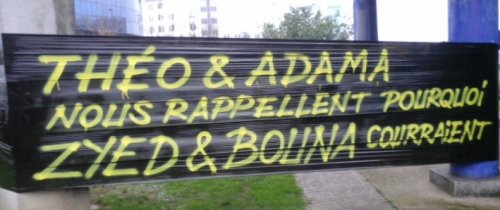 THÉO & ADAMA
NOUS RAPPELLENT POURQUOI
ZYED & BOUNA COURRAiENT